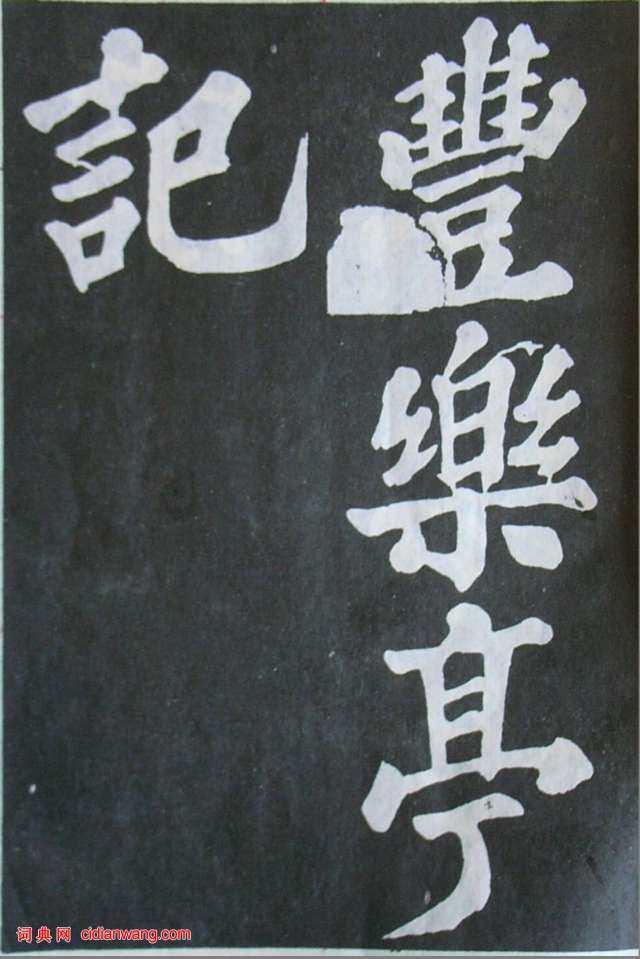 豐樂亭
記
词典网 cidianwang.com